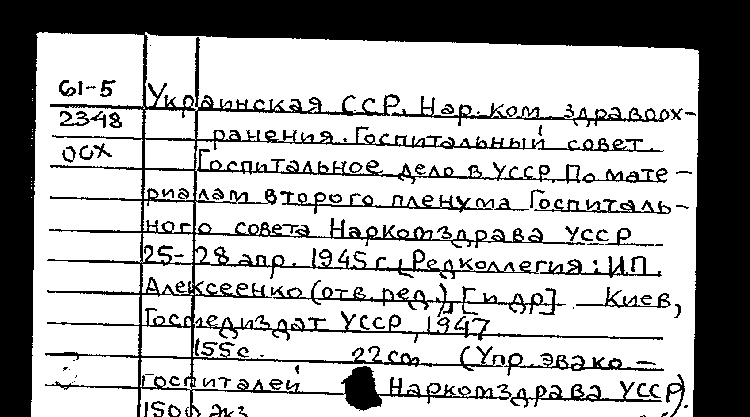 61-5
2348
ООХ
Украинская ССР. Нар. ком. здравоох-
ранения. Госпитальный совет.
Госпитальное дело в УССР. По мате-
риалам второго пленума Госпиталь-
ного совета Наркомздрава УССР
25-28 апр. 1945 г. [Редколлегия: И.П.
Алексеенко (отв. ред.), [и др]. Киев,
Госмедиздат УССР, 1947.
155 с. 22 см (Упр. эвако-
госпиталей Наркомздрава УССР).
1500 экз.